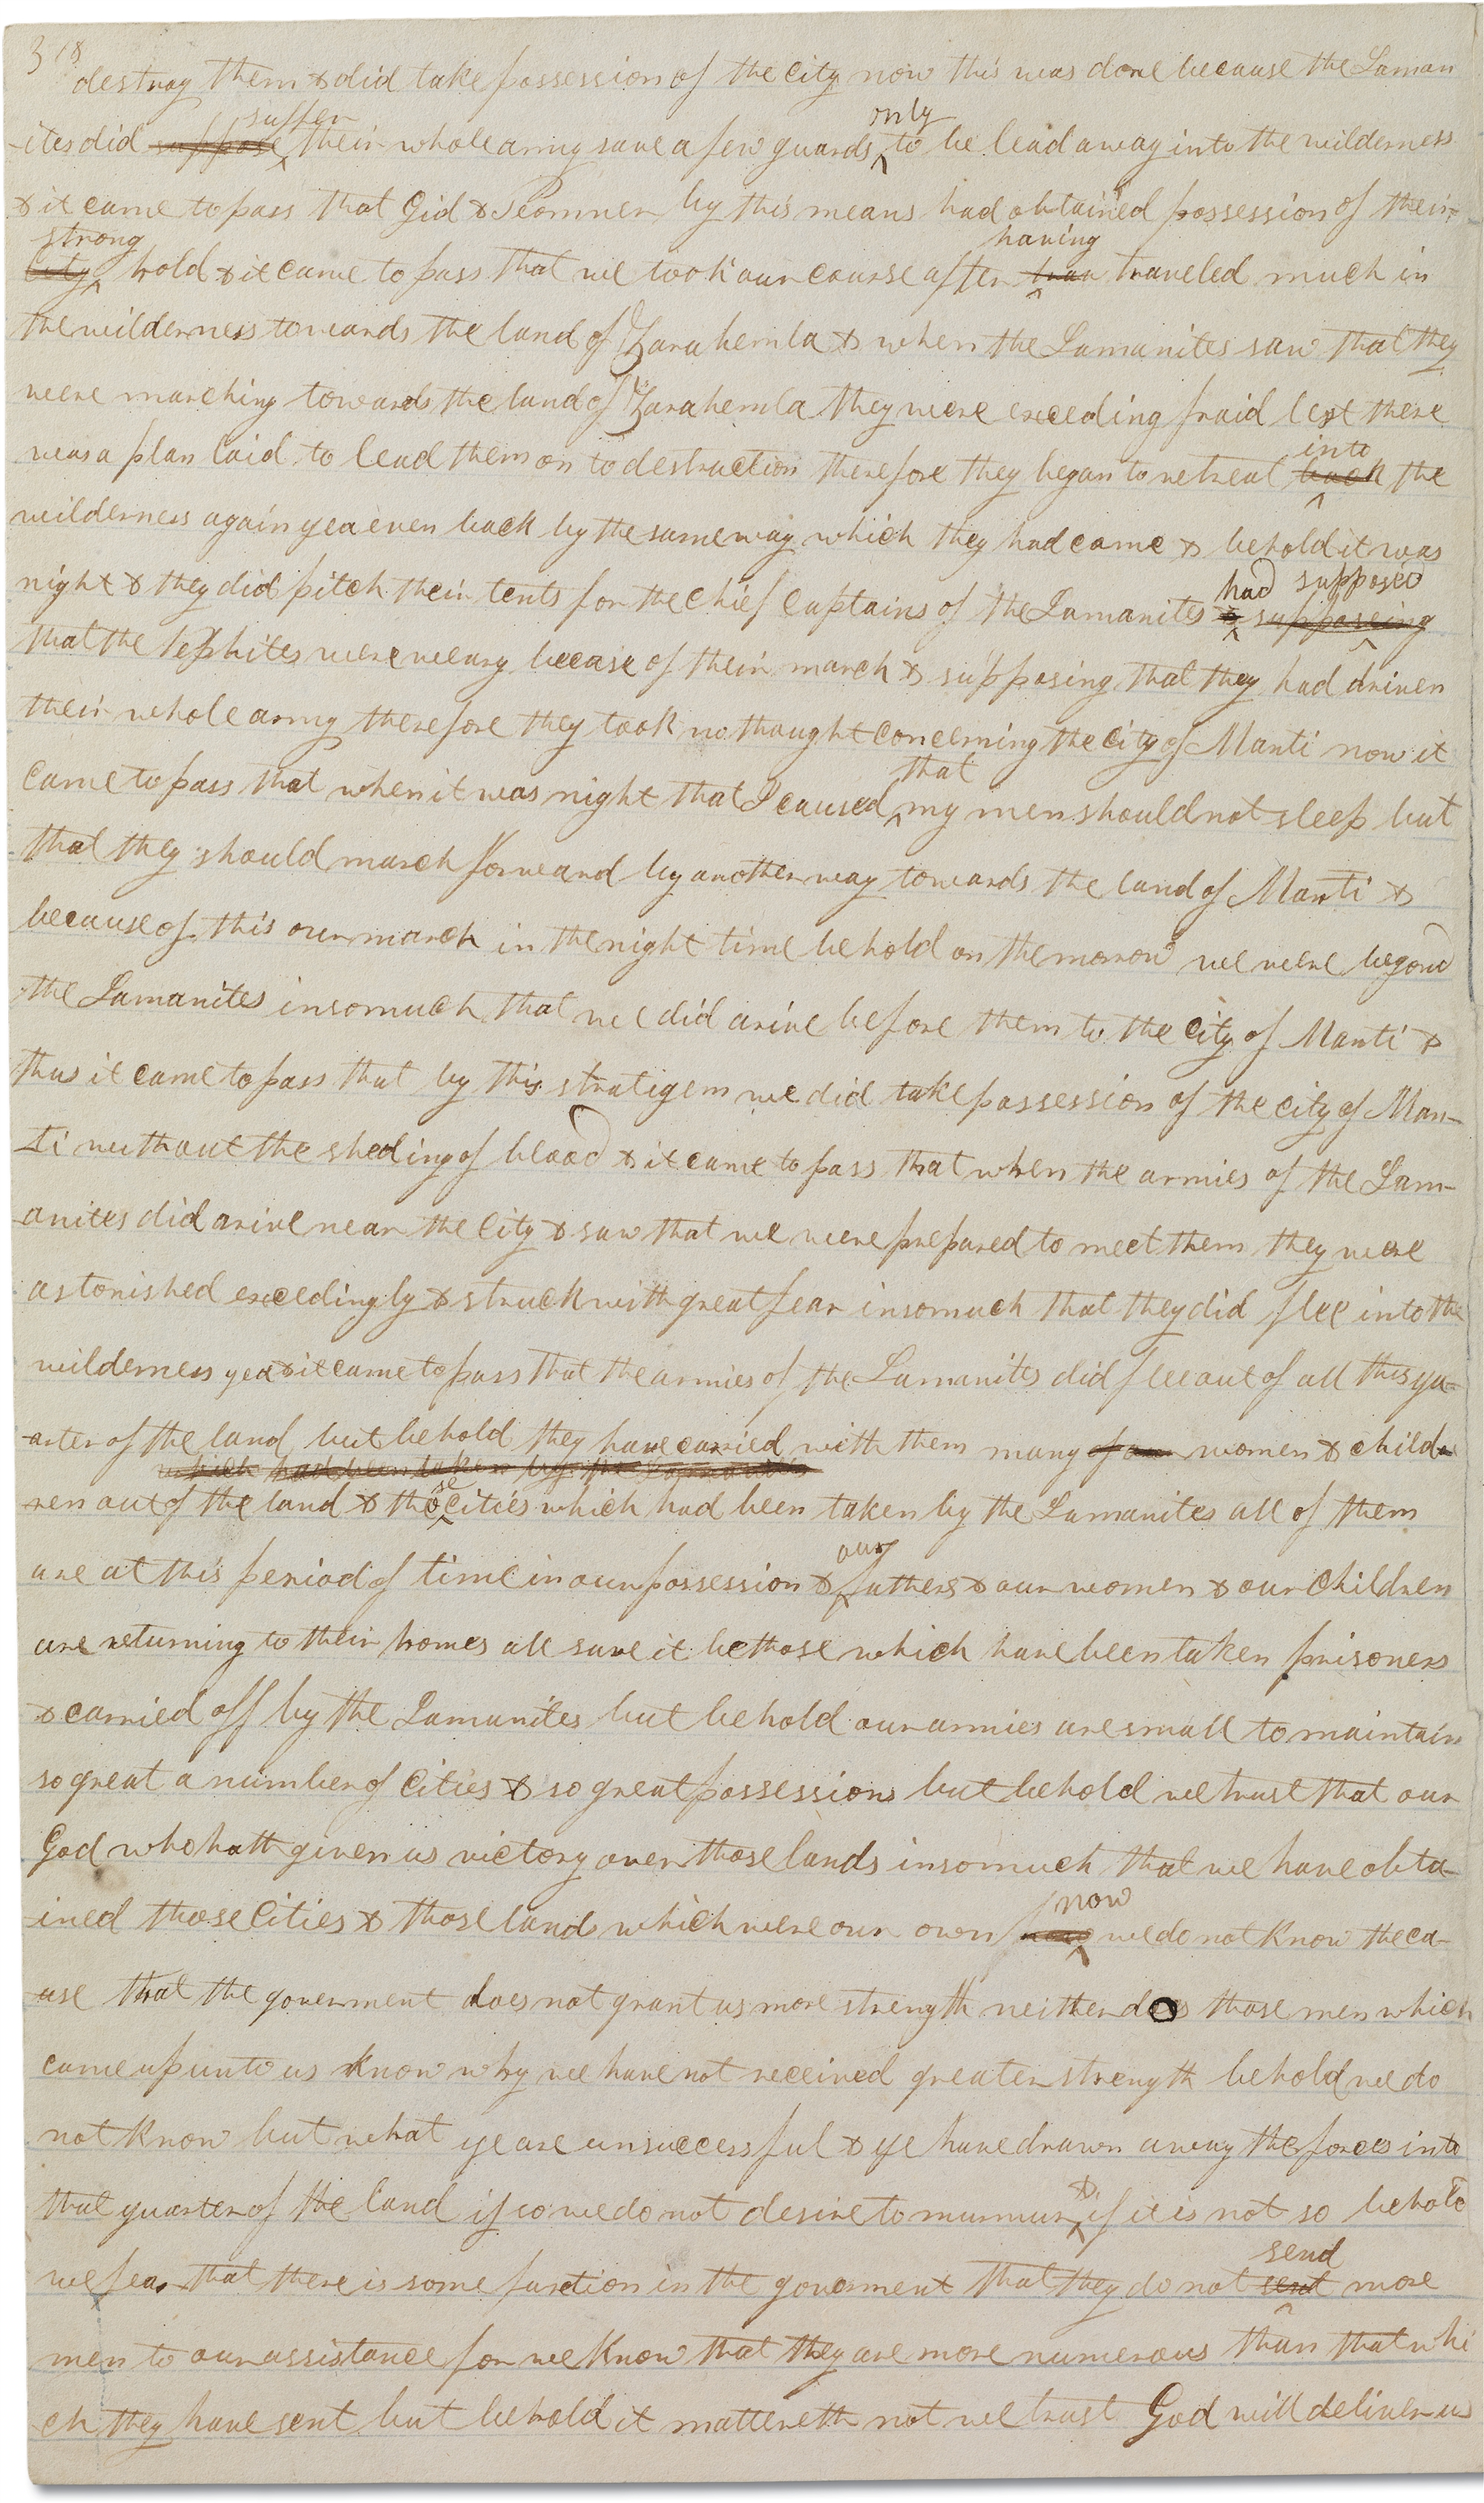 318
destroy them & did take possession of the City now this was done because the Laman
suffer only
-ites did suppose their whole army save a few guards to be lead away into the wilderness
& it came to pass that Gid & Teomner by this means had obtained possession of their
strong having
City hold & it came to pass that we took our course after traveled much in
the wilderness towards the land of Zarahemla & when the Lamanites saw that they
were marching towards the land of Zarahemla they were exceding fraid lest there
into
was a plan laid to lead them on to destruction therefore they began to retreat back the
wilderness again yea even back by the same way which they had came & behold it was
had supposed
night & they did pitch their tents for the chief captains of the Lamanites & supposeing
that the Nephites were weary becaise of their march & supposing that they had driven
their whole army therefore they took no thought concerning the City of Manti now it
that
came to pass that when it was night that I caused my men should not sleep but
that they should march forward by another way towards the land of Manti &
because of this our march in the night time behold on the morrow we were beyond
the Lamanites insomuch that we did arive before them to the City of Manti &
thus it came to pass that by this stratigem we did take possession of the City of Man-
-ti without the sheding of blood & it came to pass that when the armies of the Lam-
-anites did arive near the City & saw that we were prepared to meet them they were
astonished excedingly & struck with great fear insomuch that they did flee into the
wilderness yea & it came to pass that the armies of the Lamanites did flee out of all this qu-
-arter of the land but behold they have carried with them many women & child
which had been taken by the Lamanites
ren out of the land & those Cities which had been taken by the Lamanites all of them
our
are at this period of time in our possession & fathers & our women & our Children
are returning to their homes all save it be those which have been taken prisoners
& carried off by the Lamanites but behold our armies are small to maintain
so great a number of Cities & so great possessions but behold we trust that our
God who hath given us victory over those lands insomuch that we have obta-
now
-ined those Cities & those lands which were our own now we do not know the ca-
-use that the goverment does not grant us more strength neither do those men which
came up unto us know why we have not received greater strength behold we do
not know but what ye are unsuccessful & ye have drawn away the forces into
&
that quarter of the land if so we do not desire to murmur if it is not so behold
send
we fear that there is some faction in the goverment that they do not sent more
men to our assistance for we know that they are more numerous than that whi
-ch they have sent but behold it mattereth not we trust God will deliver us